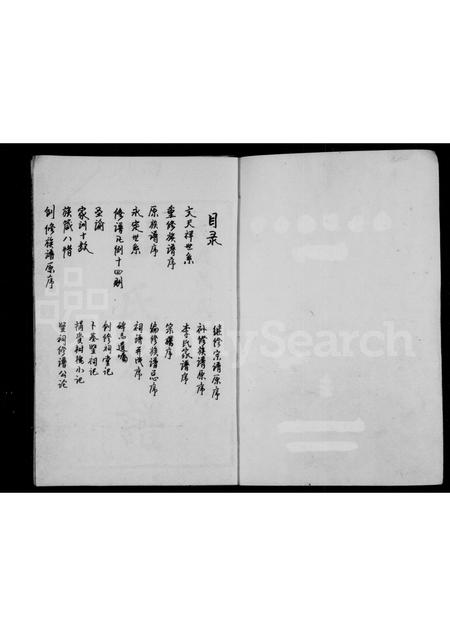 目录
文天祥世系
重修族谱序
原族谱序
永定世系
修谱凡例十四则
圣谕
家训十款
族箴八惜
创修族谱原序
继修宗谱原序
补修族谱原序
李氏家谱序
宗谱序
编修族谱总序
祠谱并成序
碑志遗嘱
创修祠堂记
卜基竖祠记
捐赀相换小记
竖祠修谱公论
MySearch